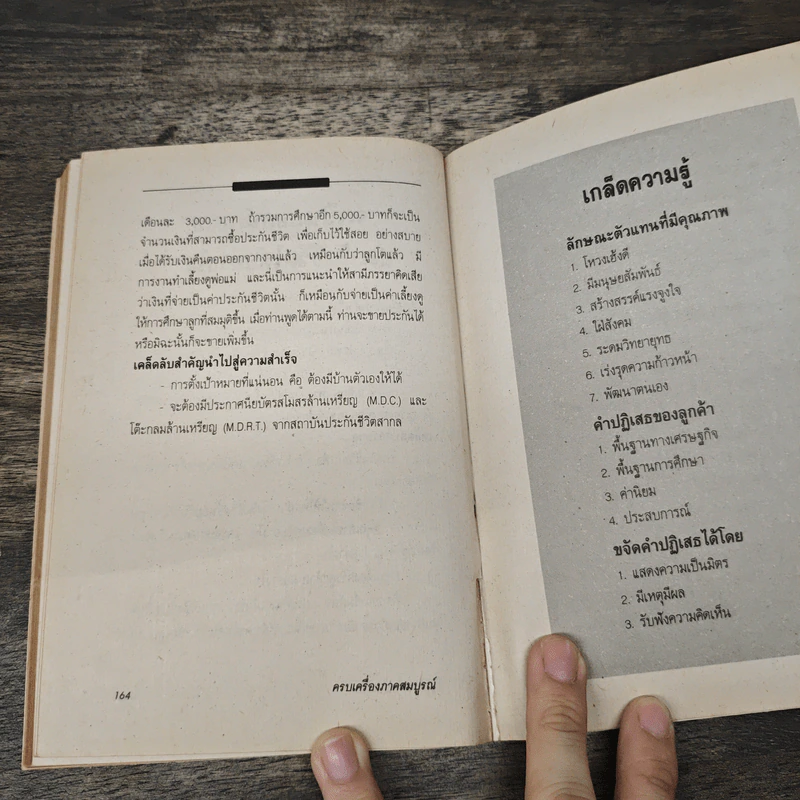 เดือนละ 3,000.- บาท ถ้ารวมการศึกษาอีก 5,000.- บาทก็จะเป็น
จำนวนเงินที่สามารถซื้อประกันชีวิต เพื่อเก็บไว้ใช้สอย อย่างสบาย
เมื่อได้รับเงินคืนตอนออกจากงานแล้ว เหมือนกับว่าลูกโตแล้ว มี
การงานทำเลี้ยงดูพ่อแม่ และนี่เป็นการแนะนำให้สามีภรรยาคิดเสีย
ว่าเงินที่จ่ายเป็นค่าประกันชีวิตนั้น ก็เหมือนกับจ่ายเป็นค่าเลี้ยงดู
ให้การศึกษาลูกที่สมมุติขึ้น เมื่อท่านพูดได้ตามนี้ ท่านจะขายประกันได้
หรือมิฉะนั้นก็จะขายเพิ่มขึ้น
เคล็ดลับสำคัญนำไปสู่ความสำเร็จ
- การตั้งเป้าหมายที่แน่นอน คือ ต้องมีบ้านตัวเองให้ได้
- จะต้องมีประกาศนียบัตรสโมสรล้านเหรียญ (M.D.C.) และ
โต๊ะกลมล้านเหรียญ (M.D.R.T.) จากสถาบันประกันชีวิตสากล
164
ครบเครื่องภาคสมบูรณ์
เกล็ดความรู้
ลักษณะตัวแทนที่มีคุณภาพ
1. โหวงเฮ้งดี
2. มีมนุษยสัมพันธ์
3. สร้างสรรค์แรงจูงใจ
4. ใฝ่สังคม
5. ระดมวิทยายุทธ
6. เร่งรุดความก้าวหน้า
7. พัฒนาตนเอง
คำปฏิเสธของลูกค้า
1. พื้นฐานทางเศรษฐกิจ
2. พื้นฐานการศึกษา
3. ค่านิยม
4. ประสบการณ์
ขจัดคำปฏิเสธได้โดย
1. แสดงความเป็นมิตร
2. มีเหตุมีผล
3. รับฟังความคิดเห็น